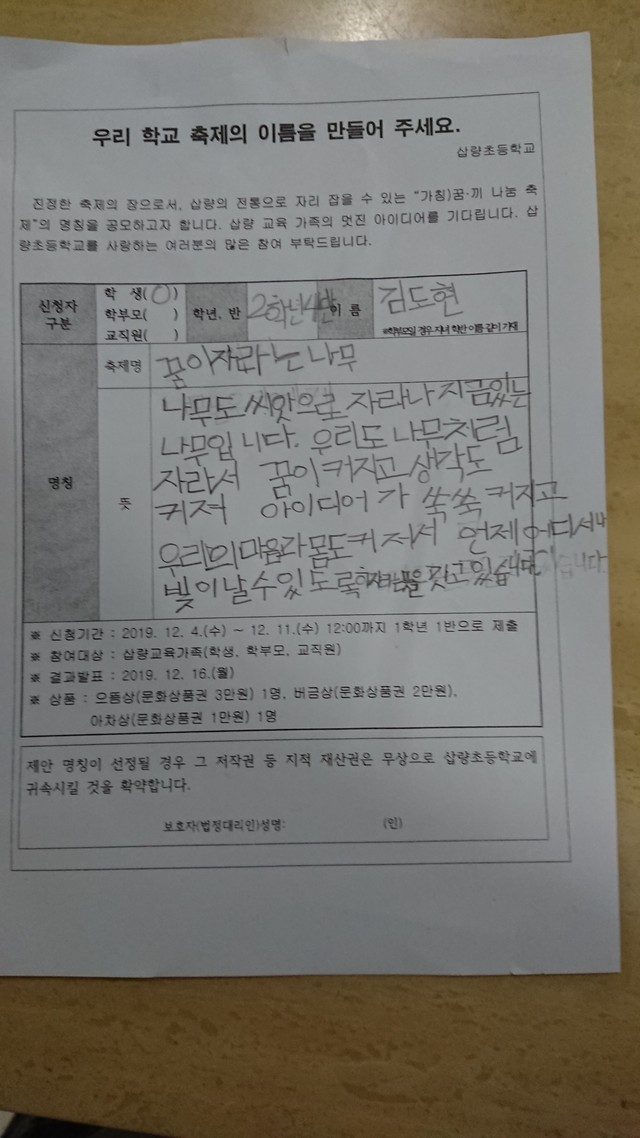 우리 학교 축제의 이름을 만들어 주세요.
삽량초등학교
진정한 축제의 장으로서, 삽량의 전통으로 자리 잡을 수 있는 "가칭)꿈·끼 나눔 축
제"의 명칭을 공모하고자 합니다. 삽량 교육 가족의 멋진 아이디어를 기다립니다. 삽
량초등학교를 사랑하는 여러분의 많은 참여 부탁드립니다.
신청자 구분
학 생(○)
학부모( )
교직원( )
학년, 반
2학년4반
이 름
김도현
※학부모일 경우 자녀 학반 이름 같이 기재
명칭
축제명
꿈이자라는나무
뜻
나무도 씨앗으로 자라나 지금있는
나무입니다. 우리도 나무처럼
자라서 꿈이 커지고 생각도
커저 아이디어가 쑥쑥 커지고
우리의마음과몸도커저서 언제어디서나
빛이날수있도록 꿈을 꾸고있습니다
※ 신청기간 : 2019. 12. 4.(수) ~ 12. 11.(수) 12:00까지 1학년 1반으로 제출
※ 참여대상 : 삽량교육가족(학생, 학부모, 교직원)
※ 결과발표 : 2019. 12. 16.(월)
※ 상품 : 으뜸상(문화상품권 3만원) 1명, 버금상(문화상품권 2만원),
아차상(문화상품권 1만원) 1명
제안 명칭이 선정될 경우 그 저작권 등 지적 재산권은 무상으로 삽량초등학교에
귀속시킬 것을 확약합니다.
보호자(법정대리인)성명: (인)